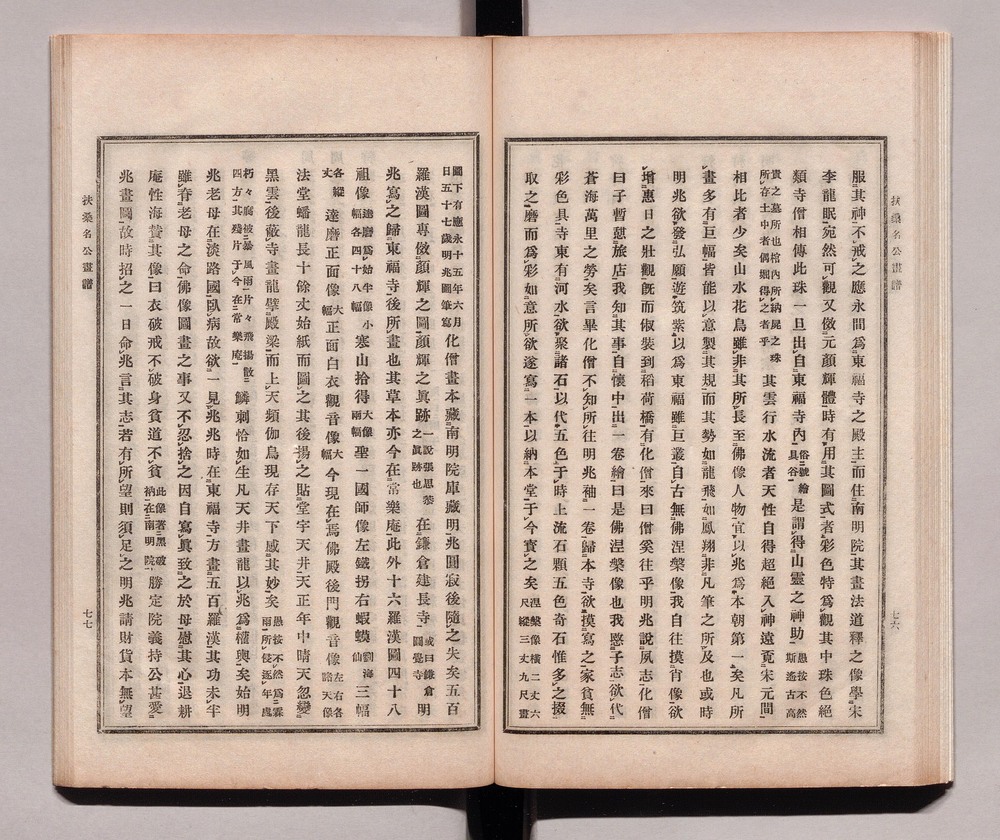 扶桑名公畫譜
七六
服其神不戒之應永間爲東福寺之殿主而住南明院其畫法道釋之像學宋
李龍眠宛然可觀又倣元顏輝體時有用其圖式者彩色特爲觀其中珠色絕
類寺僧相傳此珠一旦出自東福寺內俗號繪具谷是謂得山靈之神助愚按不然斯遙古高
貴之墓所也棺內所納屍之珠所存土中者偶掘得之者乎其雲行水流者天性自得超絕入神遠寬宋元間
相比者少矣山水花鳥雖非其所長至佛像人物宜以兆爲本朝第一矣凡所
畫多有巨幅皆能以意製其規而其勢如龍飛如鳳翔非凡筆之所及也或時
明兆欲發弘願遊筑紫以爲東福雖巨叢自古無佛涅槃像我自往摸肖像欲
增惠日之壯觀旣而俶裝到稻荷橋有化僧來曰僧奚往乎明兆說夙志化僧
曰子暫憩旅店我知其事自懷中出一卷繪曰是佛涅槃像也我愍子志欲代
蒼海萬里之勞矣言畢化僧不知所往明兆袖一卷歸本寺欲摸寫之家貧無
彩色具寺東有河水欲聚諸石以代五色于時上流石顆五色奇石惟多之掇
取之磨而爲彩如意所欲遂寫一本以納本堂于今寳之矣涅槃像橫二丈六尺縱三丈九尺畫
圖下有應永十五年六月日五十七歲明兆圖筆寫化僧畫本藏南明院庫藏明兆圓寂後隨之失矣五百
羅漢圖專倣顏輝之圖顏輝之眞跡一說張思恭之眞跡也在鎌倉建長寺或曰鎌倉圓覺寺明
兆寫之歸東福寺後所畫也其草本亦今在常樂庵此外十六羅漢圖四十八
祖像達磨爲始半像小幅各四十八幅寒山拾得大像兩幅聖一國師像左鐵拐右蝦蟆劉海仙三幅
各縱丈達磨正面像大幅正面白衣觀音像大幅今現在焉佛殿後門觀音像左右各諸天像
法堂蟠龍長十餘丈始紙而圖之其後揚之貼堂宇天井天正年中晴天忽變
黑雲後蔽寺畫龍壁殿梁而上天頻伽鳥現存天下感其妙矣愚按不然爲霖雨所侵逐年處
朽々腐被暴風雨片々飛揚散四方其殘片于今在常樂庵鱗刺恰如生凡天井畫龍以兆爲權輿矣始明
兆老母在淡路國臥病故欲一見兆兆時在東福寺方畫五百羅漢其功未半
雖眷老母之命佛像圖畫之事又不忍捨之因自寫眞致之於母慰其心退耕
庵性海贊其像曰衣破戒不破身貧道不貧此像著黑破衲在南明院勝定院義持公甚愛
兆畫圖故時招之一日命兆言其志若有所望則須足之明兆請財貨本無望
扶桑名公畫譜
七七